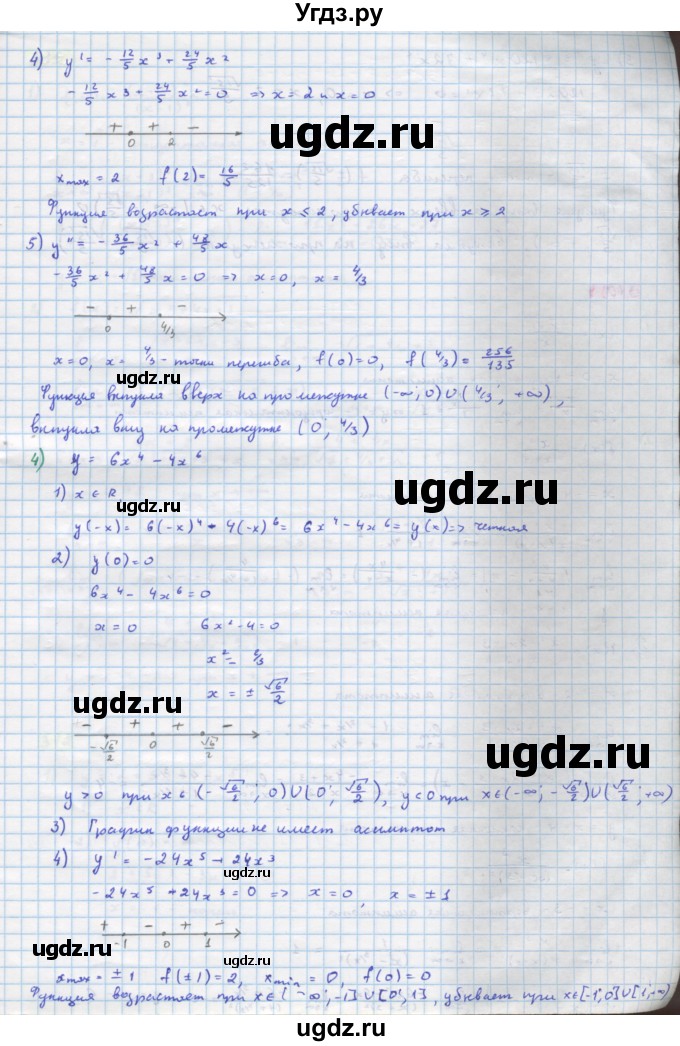 Угдз.ру
4) y' = - 12/5 x³ + 24/5 x²
- 12/5 x³ + 24/5 x² = 0 => x = 2 и x = 0
+ + -
0 2
ugdz.ru
x max = 2 f(2) = 16/5
Функция возрастает при x ≤ 2, убывает при x ≥ 2
ugdz.ru
5) y'' = - 36/5 x² + 48/5 x
- 36/5 x² + 48/5 x = 0 => x = 0, x = 4/3
- + -
0 4/3
x = 0, x = 4/3 - точки перегиба, f(0) = 0, f(4/3) = 256/135
ugdz.ru
Функция выпукла вверх на промежутке (-∞; 0) ∪ (4/3; +∞),
выпукла вниз на промежутке (0; 4/3)
4) y = 6x⁴ - 4x⁶
ugdz.ru
1) x ∈ R
y(-x) = 6(-x)⁴ - 4(-x)⁶ = 6x⁴ - 4x⁶ = y(x) => четная
2) y(0) = 0
6x⁴ - 4x⁶ = 0
x = 0 6x² - 4 = 0
x² = 2/3
x = ± √6/2
ugdz.ru
- + + -
-√6/2 0 √6/2
ugdz.ru
y > 0 при x ∈ (-√6/2; 0) ∪ (0; √6/2), y < 0 при x ∈ (-∞; -√6/2) ∪ (√6/2; +∞)
3) График функции не имеет асимптот
4) y' = -24x⁵ + 24x³
-24x⁵ + 24x³ = 0 => x = 0, x = ± 1
+ - + -
-1 0 1
ugdz.ru
ugdz.ru
x max = ± 1 f(±1) = 2, x min = 0, f(0) = 0
Функция возрастает при x ∈ (-∞; -1] ∪ [0; 1], убывает при x ∈ [-1; 0] ∪ [1; +∞)
ugdz.ru